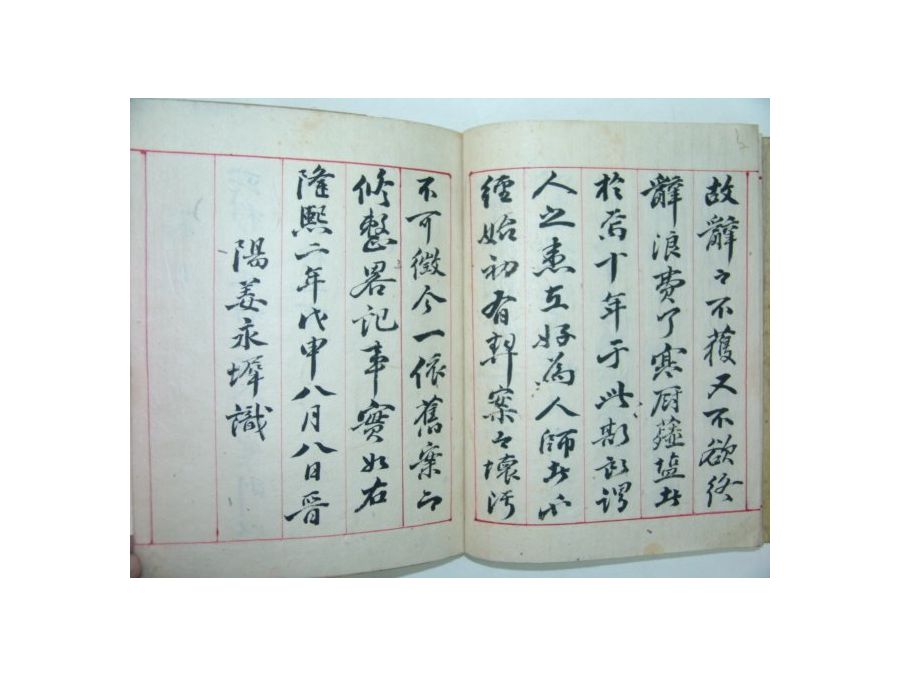 故辭々不獲又不欲終
辭浪費了寒厨薤塩者
於焉十年于此斯所謂
人之患在好為人師者
經始初有契案々壞汚
不可徵今一依舊案而
修整畧記事實如右
隆熙二年戊申八月八日晉
陽姜永墀識